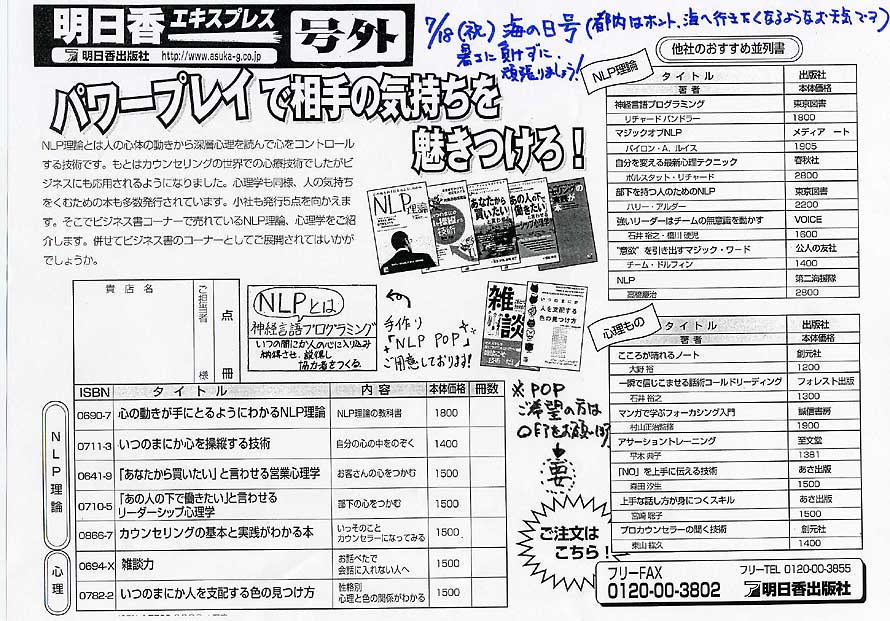 明日香エキスプレス
明日香出版社 http://www.asuka-g.co.jp
号外
7/18(祝) 海の日号(都内はホント、海へ行きたくなるようなお天気です)
暑さに負けずに、
頑張りましょう!
パワープレイで相手の気持ちを
魅きつけろ!
NLP理論とは人の心体の動きから深層心理を読んで心をコントロール
する技術です。もとはカウンセリングの世界での心療技術でしたがビ
ジネスにも応用されるようになりました。心理学も同様、人の気持ち
をくむための本も多数発行されています。小社も発行5点を向かえま
す。そこでビジネス書コーナーで売れているNLP理論、心理学をご紹
介します。併せてビジネス書のコーナーとしてご展開されてはいかが
でしょうか。
NLP理論
あなたから買いたい
あの人の下で働きたい
雑談
いつのまにか
人を支配する
色の見つけ方
貴店名
ご担当者
様
点
冊
NLPとは
神経言語プログラミング
いつの間にか人の心に入り込み
納得させ、説得し
協力者をつくる
手作り
「NLP POP」
ご用意しております!
※POP
ご希望の方は
要
ご注文は
こちら!
ISBN タイトル 内容 本体価格 冊数
NLP理論
0690-7 心の動きが手にとるようにわかるNLP理論 NLP理論の教科書 1800
0711-3 いつのまにか心を操縦する技術 自分の心の中をのぞく 1400
0641-9 「あなたから買いたい」と言わせる営業心理学 お客さんの心をつかむ 1500
0710-5 「あの人の下で働きたい」と言わせる
リーダーシップ心理学 部下の心をつかむ 1500
0866-7 カウンセリングの基本と実践がわかる本 いっそのこと
カウンセラーになってみる 1500
心理
0694-X 雑談力 お話べたで
会話に入れない人へ 1500
0782-2 いつのまにか人を支配する色の見つけ方 性格別
心理と色の関係がわかる 1500
他社のおすすめ並列書
NLP理論
タイトル 出版社
著者 本体価格
神経言語プログラミング 東京図書
リチャードバンドラー 1800
マジックオブNLP メディア ート
バイロン・A. ルイス 1905
自分を変える最新心理テクニック 春秋社
ボルスタット・リチャード 2800
部下を持つ人のためのNLP 東京図書
ハリー・アルダー 2200
強いリーダーはチームの無意識を動かす VOICE
石井 裕之・ 1600
"意欲"を引き出すマジック・ワード 公人の友社
チーム・ドルフィン 1400
NLP 第二海援隊
高橋慶治 2800
心理もの
タイトル 出版社
著者 本体価格
こころが晴れるノート 創元社
大野 裕 1200
一瞬で信じこませる話術コールドリーディング フォレスト出版
石井 裕之 1300
マンガで学ぶフォーカシング入門 誠信書房
村山正治監修 1900
アサーショントレーニング 至文堂
平木 典子 1381
「NO」を上手に伝える技術 あさ出版
森田 汐生 1500
上手な話し方が身につくスキル あさ出版
宮崎 聡子 1500
プロカウンセラーの聞く技術 創元社
東山 紘久 1400
フリーFAX
0120-00-3802
フリーTEL 0120-00-3855
明日香出版社